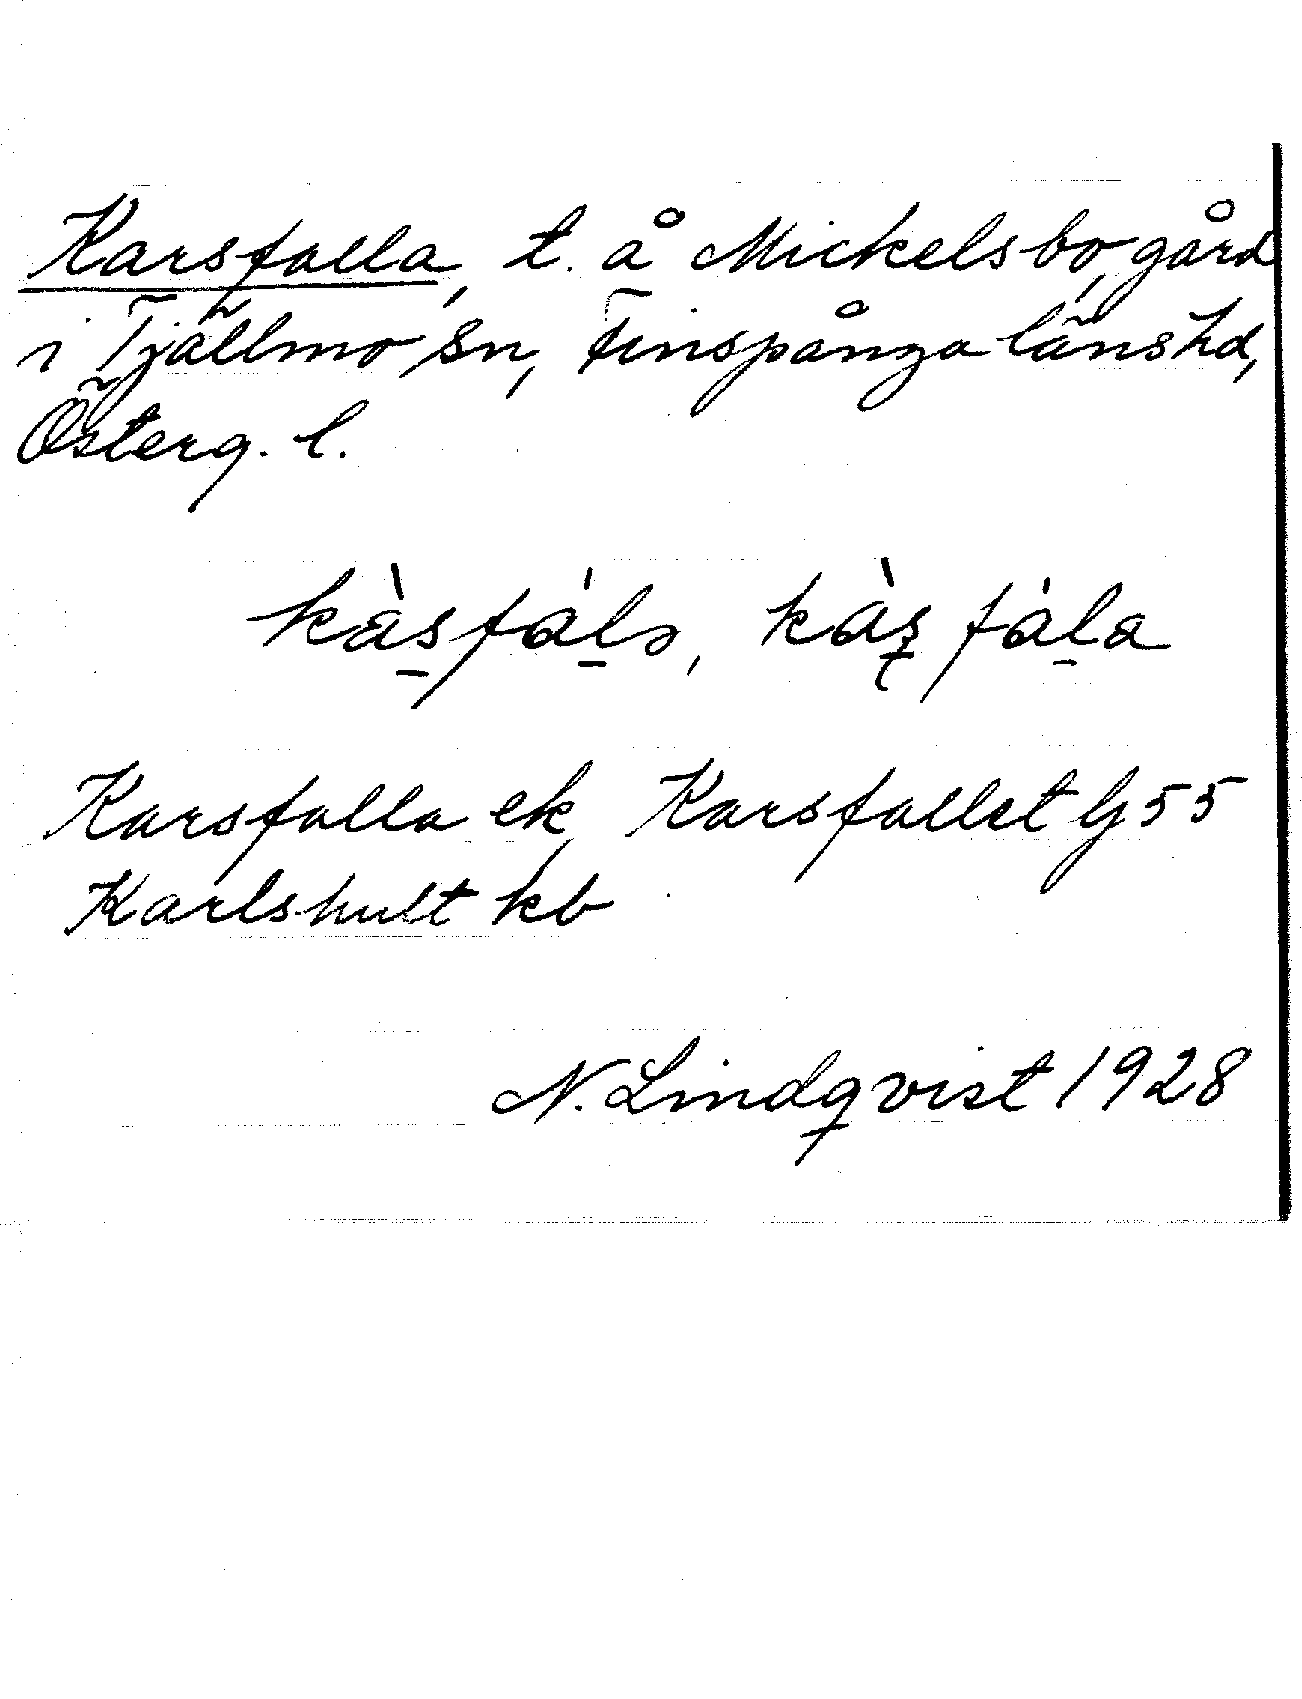 Karsfalla, t. å Mickelsbo, gård
i Tjällmo sn, Finspånga länshd,
Österg. l.
kàs̱fáḻə, kàʂfáḻa
Karsfalla ek, Karsfallet G 55
Karlshult kb
N. Lindqvist 1928